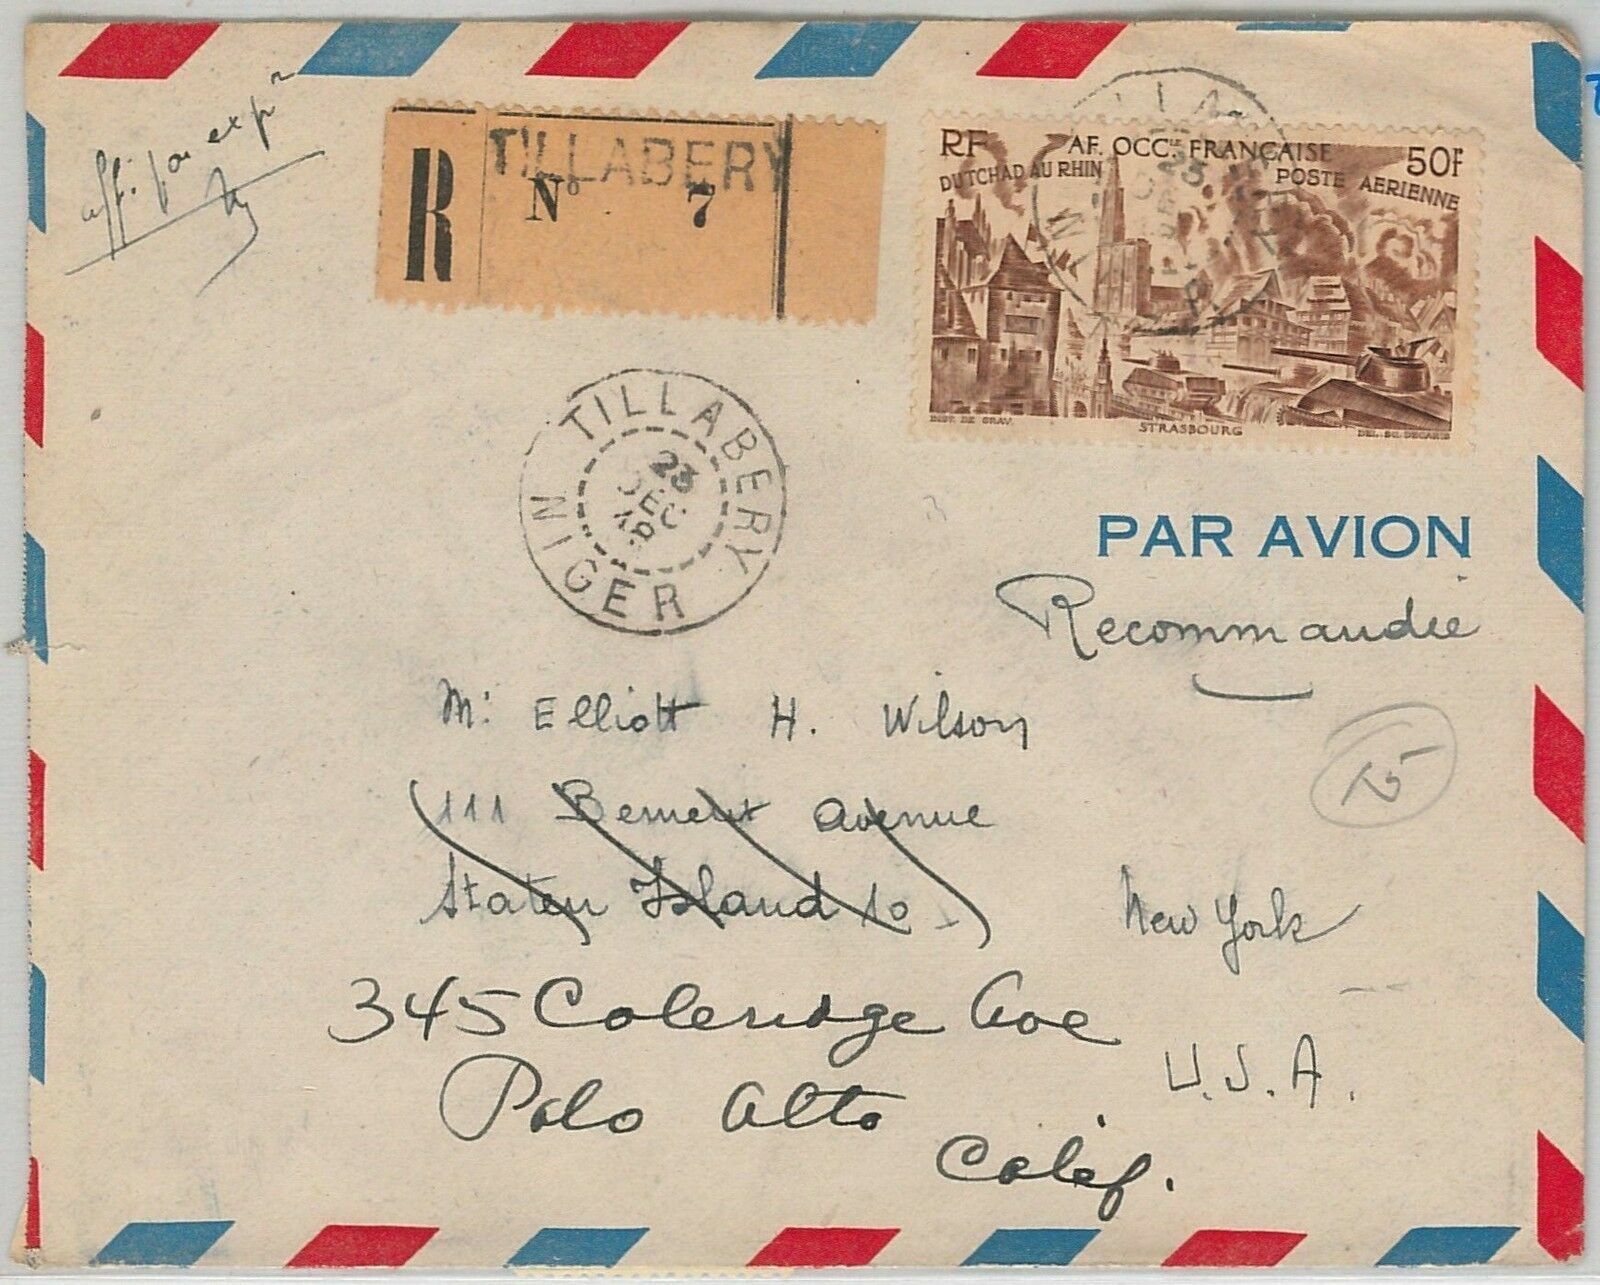 aff. par expr
R
TILLABERY
N° 7
RF
AF. OCC.LE FRANÇAISE
50F
DU TCHAD AU RHIN
POSTE AERIENNE
STRASBOURG
TILLABERY
23
DEC
NIGER
PAR AVION
Recommandée
Mr Elliott H. Wilson
111 Bement Avenue
Staten Island 10
New York
345 Coleridge Ave
U.S.A.
Palo Alto
Calif.